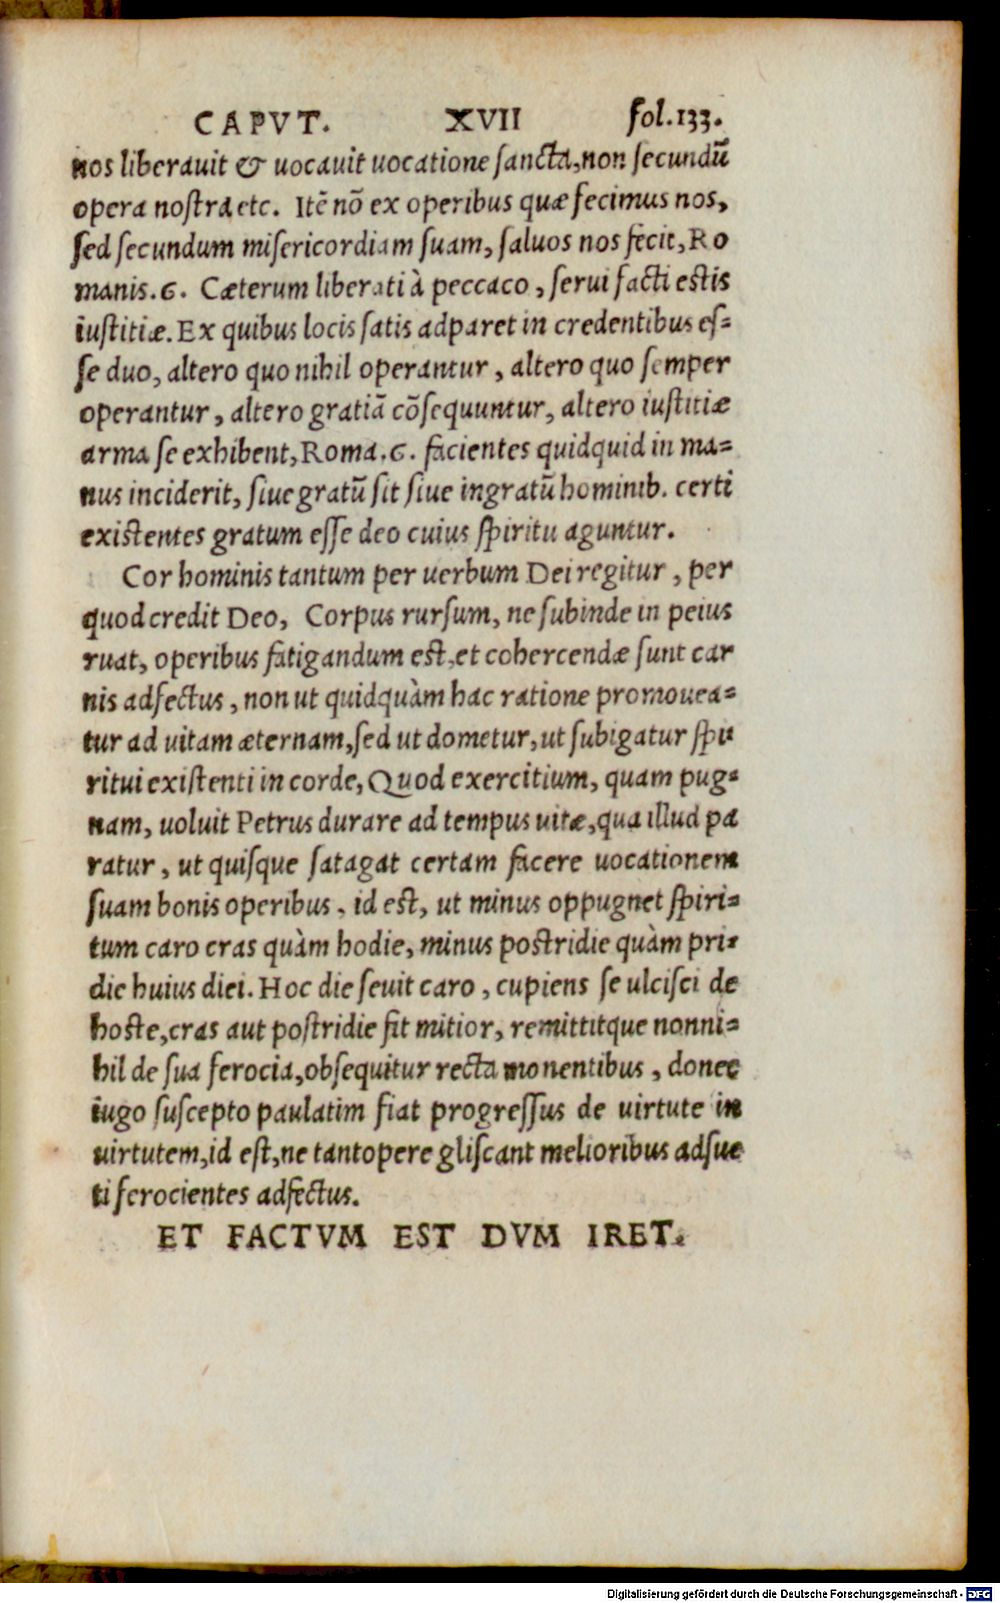 CAPVT. XVII fol.133.
nos liberauit & uocauit uocatione sancta, non secundũ
opera nostra etc. Itẽ nõ ex operibus quæ fecimus nos,
sed secundum misericordiam suam, saluos nos fecit, Ro
manis.6. Cæterum liberati à peccaco, serui facti estis
iustitiæ. Ex quibus locis satis adparet in credentibus es-
se duo, altero quo nihil operantur, altero quo semper
operantur, altero gratiã cõsequuntur, altero iustitiæ
arma se exhibent, Roma.6. facientes quidquid in ma-
nus inciderit, siue gratũ sit siue ingratũ hominib. certi
existentes gratum esse deo cuius spiritu aguntur.
Cor hominis tantum per uerbum Dei regitur, per
quod credit Deo, Corpus rursum, ne subinde in peius
ruat, operibus fatigandum est, et cohercendæ sunt car
nis adfectus, non ut quidquàm hac ratione promouea-
tur ad uitam æternam, sed ut dometur, ut subigatur spi
ritui existenti in corde, Quod exercitium, quam pug-
nam, uoluit Petrus durare ad tempus uitæ, qua illud pa
ratur, ut quisque satagat certam facere uocationem
suam bonis operibus, id est, ut minus oppugnet spiri-
tum caro cras quàm hodie, minus postridie quàm pri-
die huius diei. Hoc die seuit caro, cupiens se ulcisci de
hoste, cras aut postridie fit mitior, remittitque nonni-
hil de sua ferocia, obsequitur recta monentibus, donec
iugo suscepto paulatim fiat progressus de uirtute in
uirtutem, id est, ne tantopere gliscant melioribus adsue
ti ferocientes adfectus.
ET FACTVM EST DVM IRET.
Digitalisierung gefördert durch die Deutsche Forschungsgemeinschaft - DFG